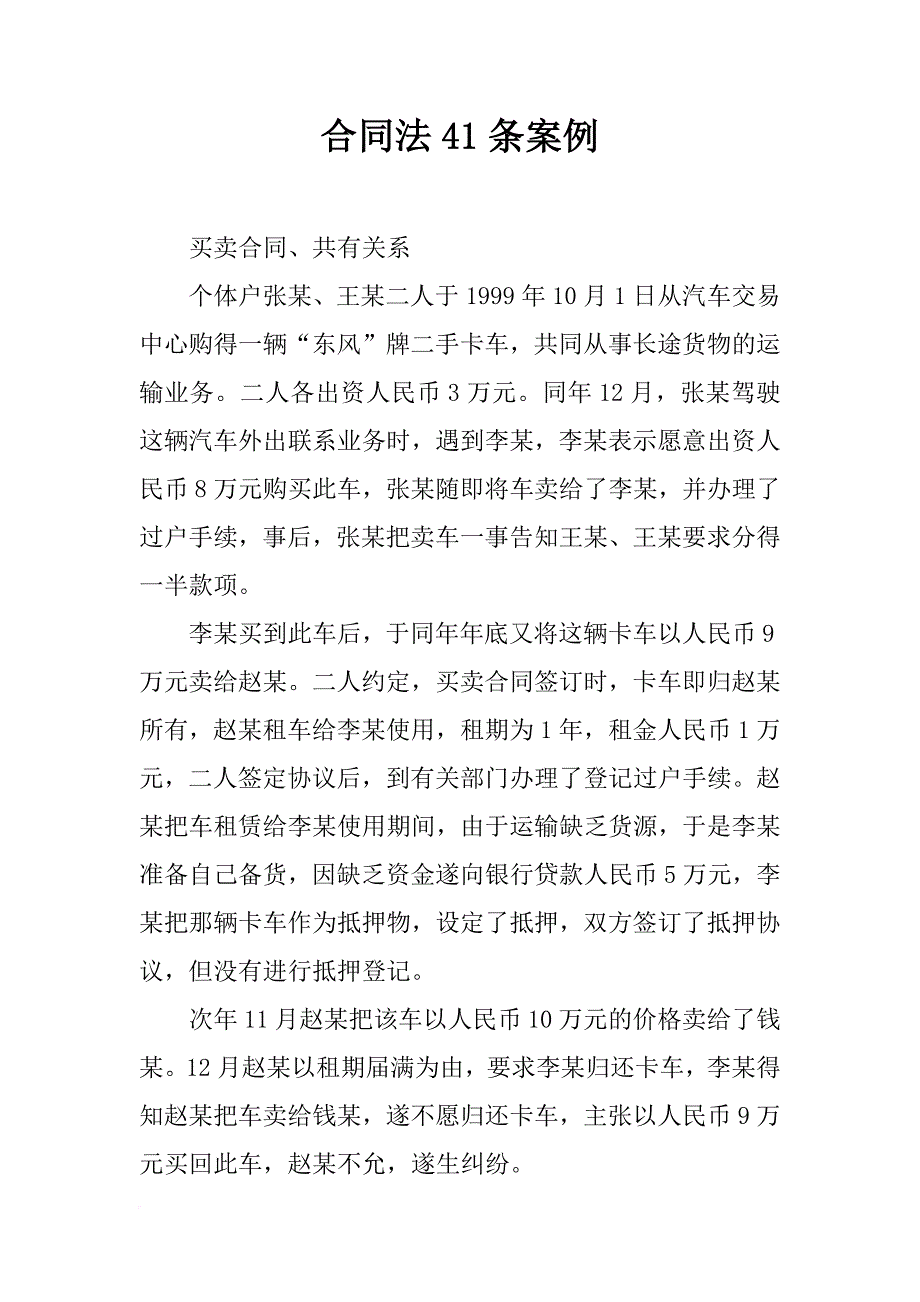 合同法 41 条案例
买卖合同、共有关系
个体户张某、王某二人于 1999 年 10 月 1 日从汽车交易
中心购得一辆“东风”牌二手卡车，共同从事长途货物的运
输业务。二人各出资人民币 3 万元。同年 12 月，张某驾驶
这辆汽车外出联系业务时，遇到李某，李某表示愿意出资人
民币 8 万元购买此车，张某随即将车卖给了李某，并办理了
过户手续，事后，张某把卖车一事告知王某、王某要求分得
一半款项。
李某买到此车后，于同年年底又将这辆卡车以人民币 9
万元卖给赵某。二人约定，买卖合同签订时，卡车即归赵某
所有，赵某租车给李某使用，租期为 1 年，租金人民币 1 万
元，二人签定协议后，到有关部门办理了登记过户手续。赵
某把车租赁给李某使用期间，由于运输缺乏货源，于是李某
准备自己备货，因缺乏资金遂向银行贷款人民币 5 万元，李
某把那辆卡车作为抵押物，设定了抵押，双方签订了抵押协
议，但没有进行抵押登记。
次年 11 月赵某把该车以人民币 10 万元的价格卖给了钱
某。12 月赵某以租期届满为由，要求李某归还卡车，李某得
知赵某把车卖给钱某，遂不愿归还卡车，主张以人民币 9 万
元买回此车，赵某不允，遂生纠纷。